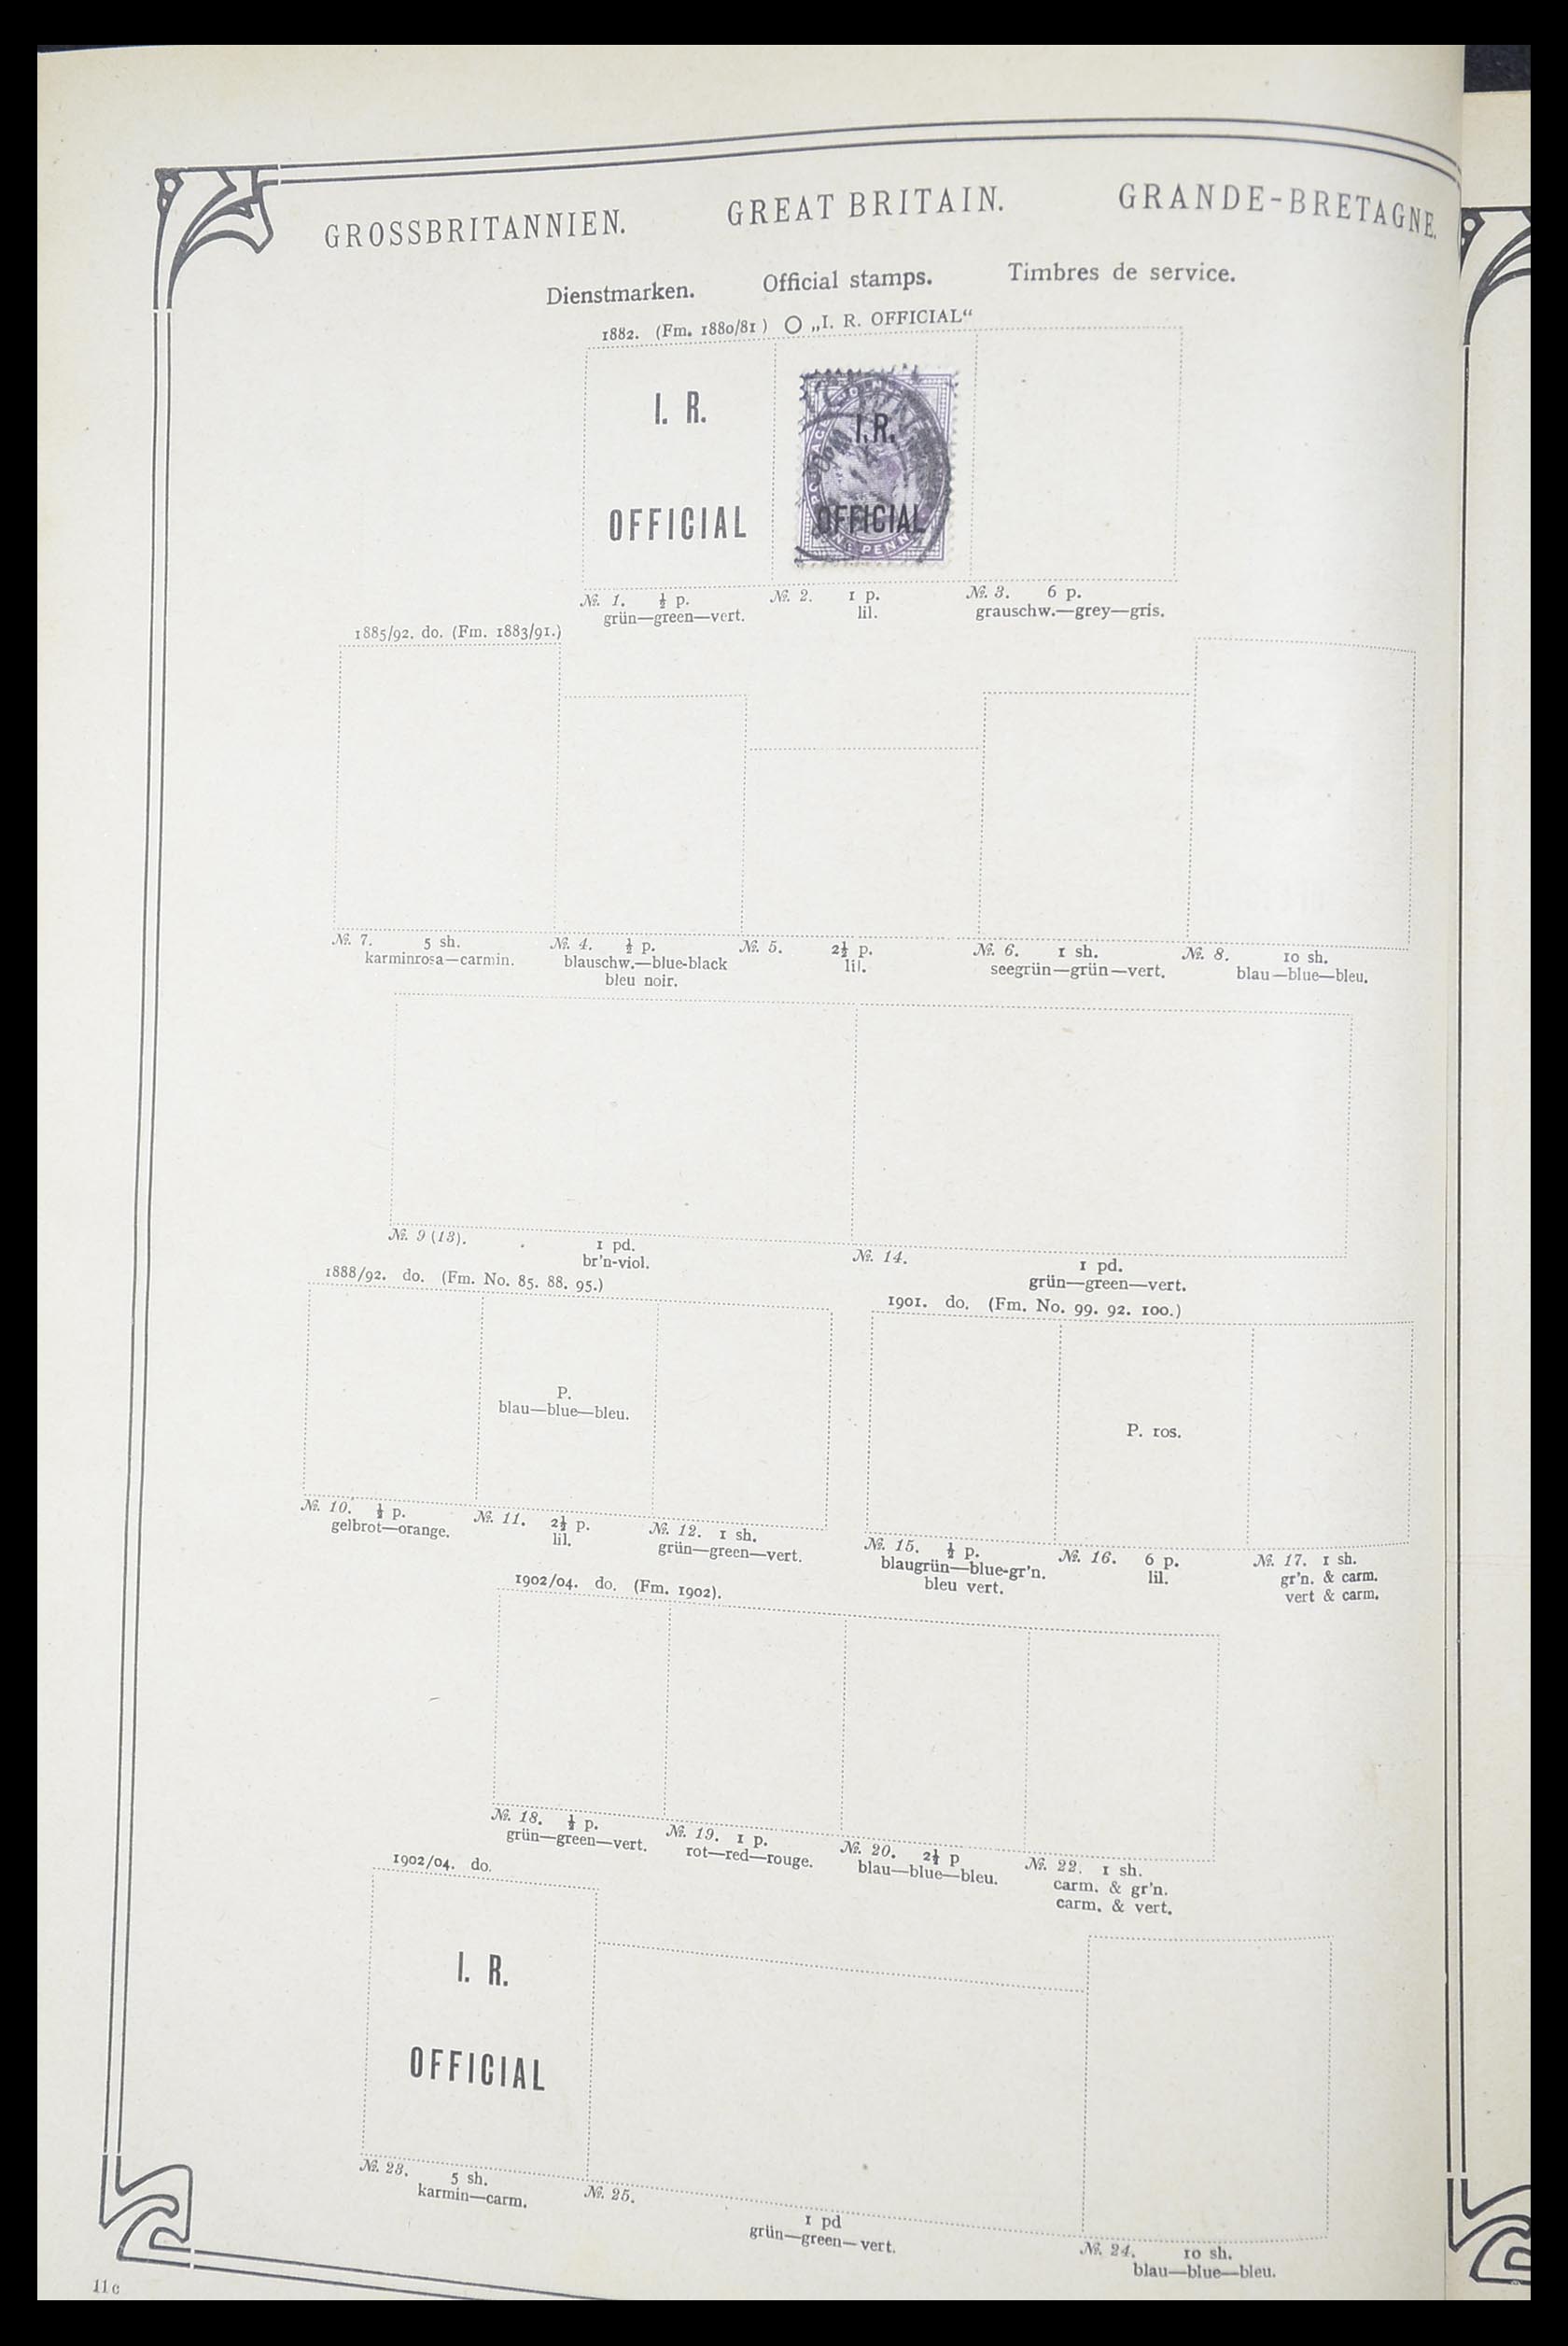 GROSSBRITANNIEN. GREAT BRITAIN. GRANDE-BRETAGNE.
Dienstmarken. Official stamps. Timbres de service.
1882. (Fm. 1880/81) O „I. R. OFFICIAL“
I. R.
OFFICIAL
I.R.
OFFICIAL
PENNY
№. 1. ½ p.
grün—green—vert.
№. 2. 1 p.
lil.
№. 3. 6 p.
grauschw.—grey—gris.
1885/92. do. (Fm. 1883/91.)
№. 7. 5 sh.
karminrosa—carmin.
№. 4. ½ p.
blauschw.—blue-black
bleu noir.
№. 5. 2½ p.
lil.
№. 6. 1 sh.
seegrün—grün—vert.
№. 8. 10 sh.
blau—blue—bleu.
№. 9 (13). 1 pd.
br'n-viol.
№. 14. 1 pd.
grün—green—vert.
1888/92. do. (Fm. No. 85. 88. 95.)
P.
blau—blue—bleu.
№. 10. ½ p.
gelbrot—orange.
№. 11. 2½ p.
lil.
№. 12. 1 sh.
grün—green—vert.
1901. do. (Fm. No. 99. 92. 100.)
P. ros.
№. 15. ½ p.
blaugrün—blue-gr'n.
bleu vert.
№. 16. 6 p.
lil.
№. 17. 1 sh.
gr'n. & carm.
vert & carm.
1902/04. do. (Fm. 1902).
№. 18. ½ p.
grün—green—vert.
№. 19. 1 p.
rot—red—rouge.
№. 20. 2½ p
blau—blue—bleu.
№. 22. 1 sh.
carm. & gr'n.
carm. & vert.
1902/04. do.
I. R.
OFFICIAL
№. 23. 5 sh.
karmin—carm.
№. 25. 1 pd
grün—green—vert.
№. 24. 10 sh.
blau—blue—bleu.
11c